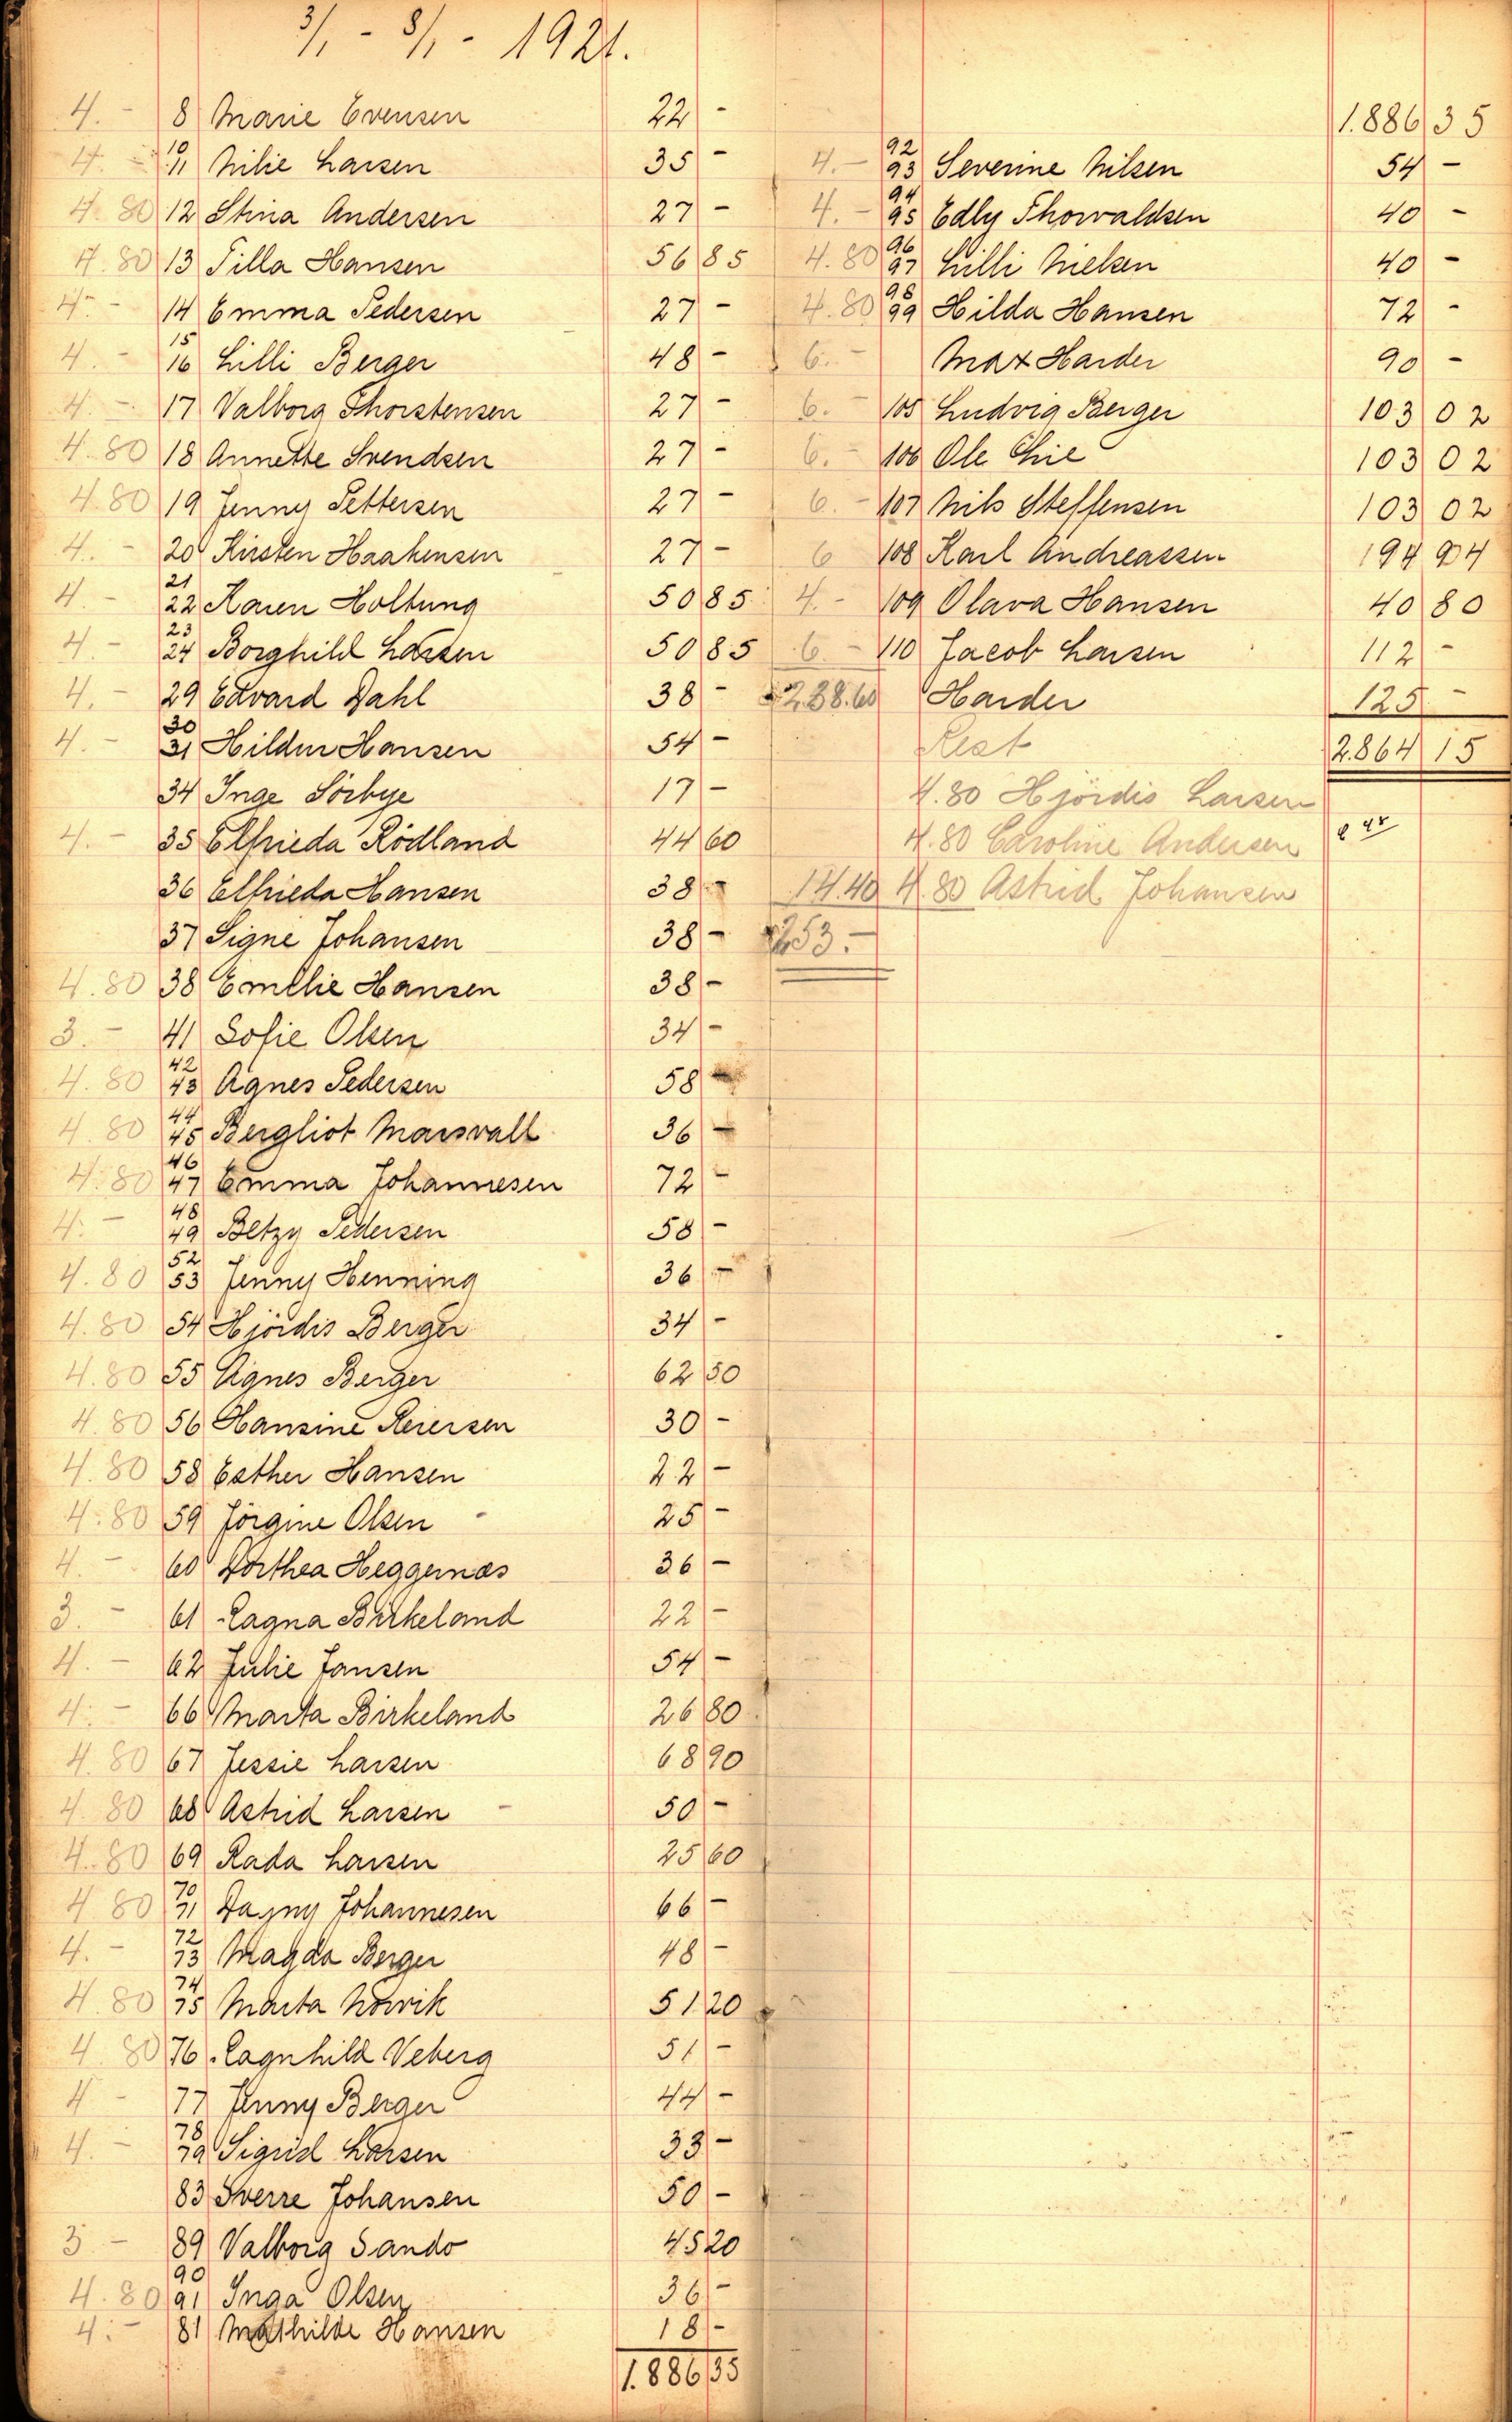 3/1 - 8/1 - 1921.
4. - 8 Marie Evensen 22 -
4. - 10 11 Milie Larsen 35 -
4. 80 12 Stina Andersen 27 -
4. 80 13 Tilla Hansen 56 85
4. - 14 Emma Pedersen 27 -
4. - 15 16 Lilli Berger 48 -
4. - 17 Valborg Thorstensen 27 -
4. 80 18 Annette Svendsen 27 -
4. 80 19 Jenny Pettersen 27 -
4. - 20 Kirsten Haakensen 27 -
4 - 21 22 Karen Holtung 50 85
4 - 23 24 Borghild Larsen 50 85
4. - 29 Edvard Dahl 38 -
4. - 30 31 Hildur Hansen 54 -
34 Inge Sörbye 17 -
4. - 35 Elfrieda Rödland 44 60
36 Elfrieda Hansen 38 -
37 Signe Johansen 38 -
4. 80 38 Emilie Hansen 38 -
3. - 41 Sofie Olsen 34 -
4. 80 42 43 Agnes Pedersen 58 -
4. 80 44 45 Bergliot Marsvall 36 -
4. 80 46 47 Emma Johannesen 72 -
4. - 48 49 Betzy Pedersen 58 -
4. 80 52 53 Jenny Henning 36 -
4. 80 54 Hjördis Berger 34 -
4. 80 55 Agnes Berger 62 50
4. 80 56 Hansine Reiersen 30 -
4. 80 58 Esther Hansen 22 -
4. 80 59 Jörgine Olsen 25 -
4. - 60 Dorthea Heggernæs 36 -
3. - 61 Ragna Birkeland 22 -
4. - 62 Julie Jansen 54 -
4. - 66 Marta Birkeland 26 80
4. 80 67 Jessie Larsen 68 90
4. 80 68 Astrid Larsen 50 -
4. 80 69 Rada Larsen 25 60
4 80 70 71 Dagny Johannesen 66 -
4. - 72 73 Magda Berger 48 -
4. 80 74 75 Marta Nowik 51 20
4 80 76 Ragnhild Veberg 51 -
4 - 77 Jenny Berger 44 -
4. - 78 79 Sigrid Larsen 33 -
83 Sverre Johansen 50 -
3 - 89 Valborg Sando 45 20
4. 80 90 91 Inga Olsen 36 -
4. - 81 Mathilde Hansen 18 -
1.886 35
1.886 35
4. - 92 93 Severine Nilsen 54 -
4. - 94 95 Edly Thorvaldsen 40 -
4. 80 96 97 Lilli Nielsen 40 -
4. 80 98 99 Hilda Hansen 72 -
6. - Max Harder 90 -
6. - 105 Ludvig Berger 103 02
6. - 106 Ole Thie 103 02
6. - 107 Nils Steffensen 103 02
6 108 Karl Andreassen 194 94
4. - 109 Olava Hansen 40 80
6 - 110 Jacob Larsen 112 -
238.60 Harder 125 -
Rest 2.864 15
4.80 Hjördis Larsen
4.80 Caroline Andersen
14.40 4.80 Astrid Johansen
253. -